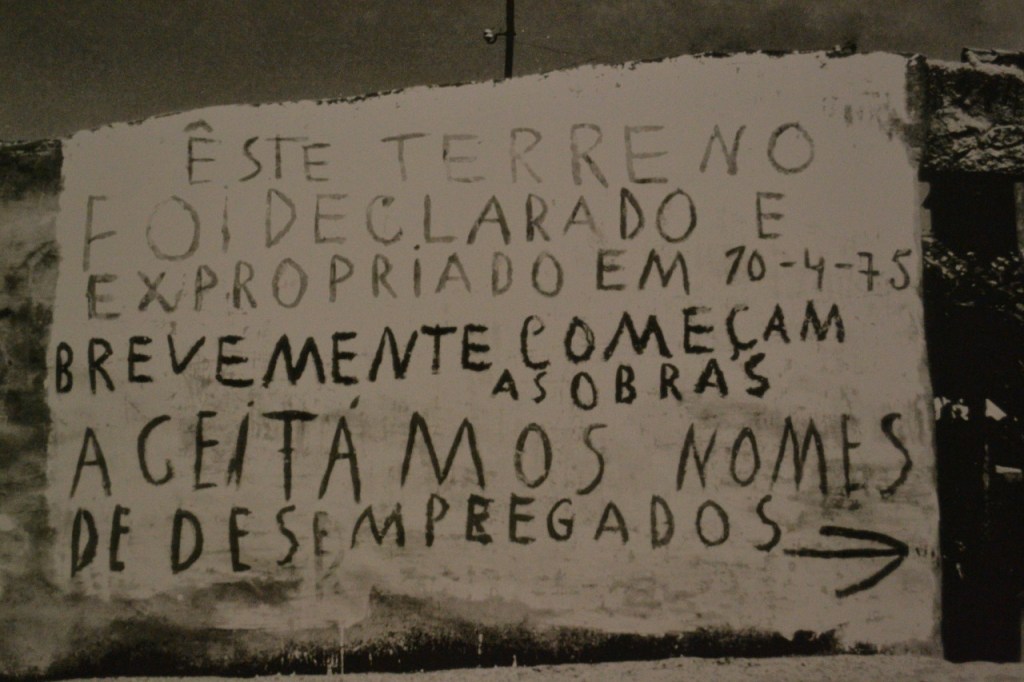 ÊSTE TERRENO
FOI DECLARADO E
EXPROPRIADO EM 10-4-75
BREVEMENTE COMEÇAM
AS OBRAS
ACEITÁMOS NOMES
DE DESEMPREGADOS →